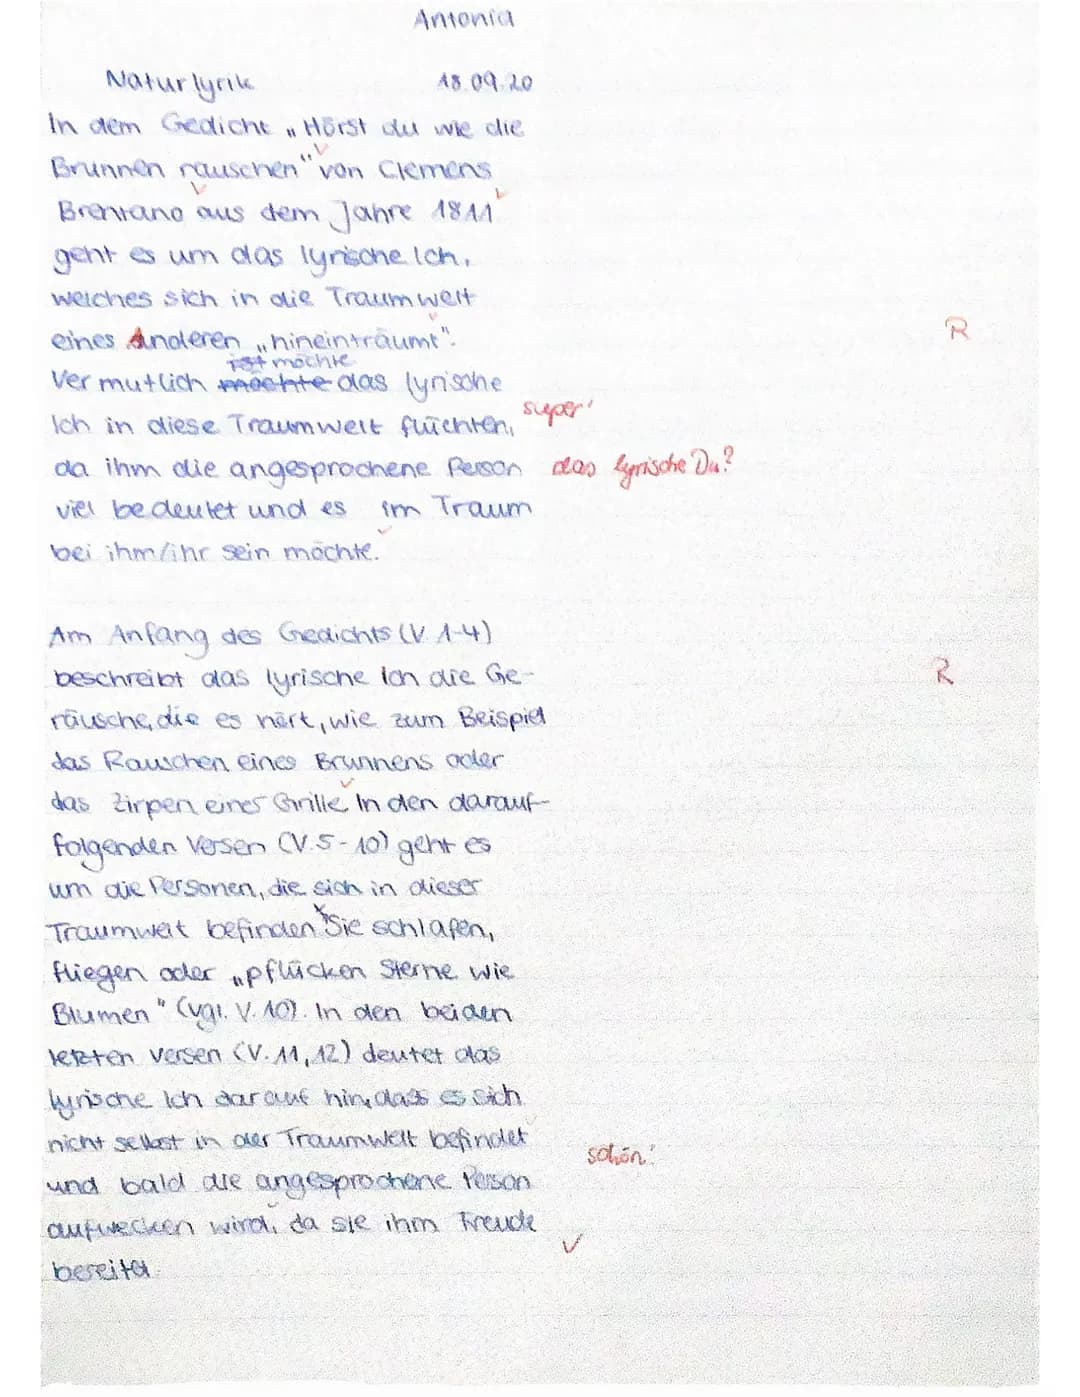 Antonia
Naturlyrik 18.09.20
In dem Gedicht „Hörst du wie die
Brunnen rauschen" von Clemens
Brentano aus dem Jahre 1811
geht es um das lyrische Ich,
welches sich in die Traumwelt
eines Anderen „hineinträumt". R
möchte
Vermutlich möchte das lyrische
Ich in diese Traumwelt flüchten, super!
da ihm die angesprochene Person das lyrische Du?
viel bedeutet und es im Traum
bei ihm/ihr sein möchte.
Am Anfang des Gedichts (V. 1-4)
beschreibt das lyrische Ich die Ge- R
räusche, die es hört, wie zum Beispiel
das Rauschen eines Brunnens oder
das Zirpen einer Grille. In den darauf-
folgenden Versen (V.5-10) geht es
um die Personen, die sich in dieser
Traumwelt befinden. Sie schlafen,
fliegen oder „pflücken Sterne wie
Blumen" (vgl. V. 10). In den beiden
letzten Versen (V. 11, 12) deutet das
lyrische Ich darauf hin, dass es sich
nicht selbst in der Traumwelt befindet schön!
und bald die angesprochene Person
aufwecken wird, da sie ihm Freude
bereitet.